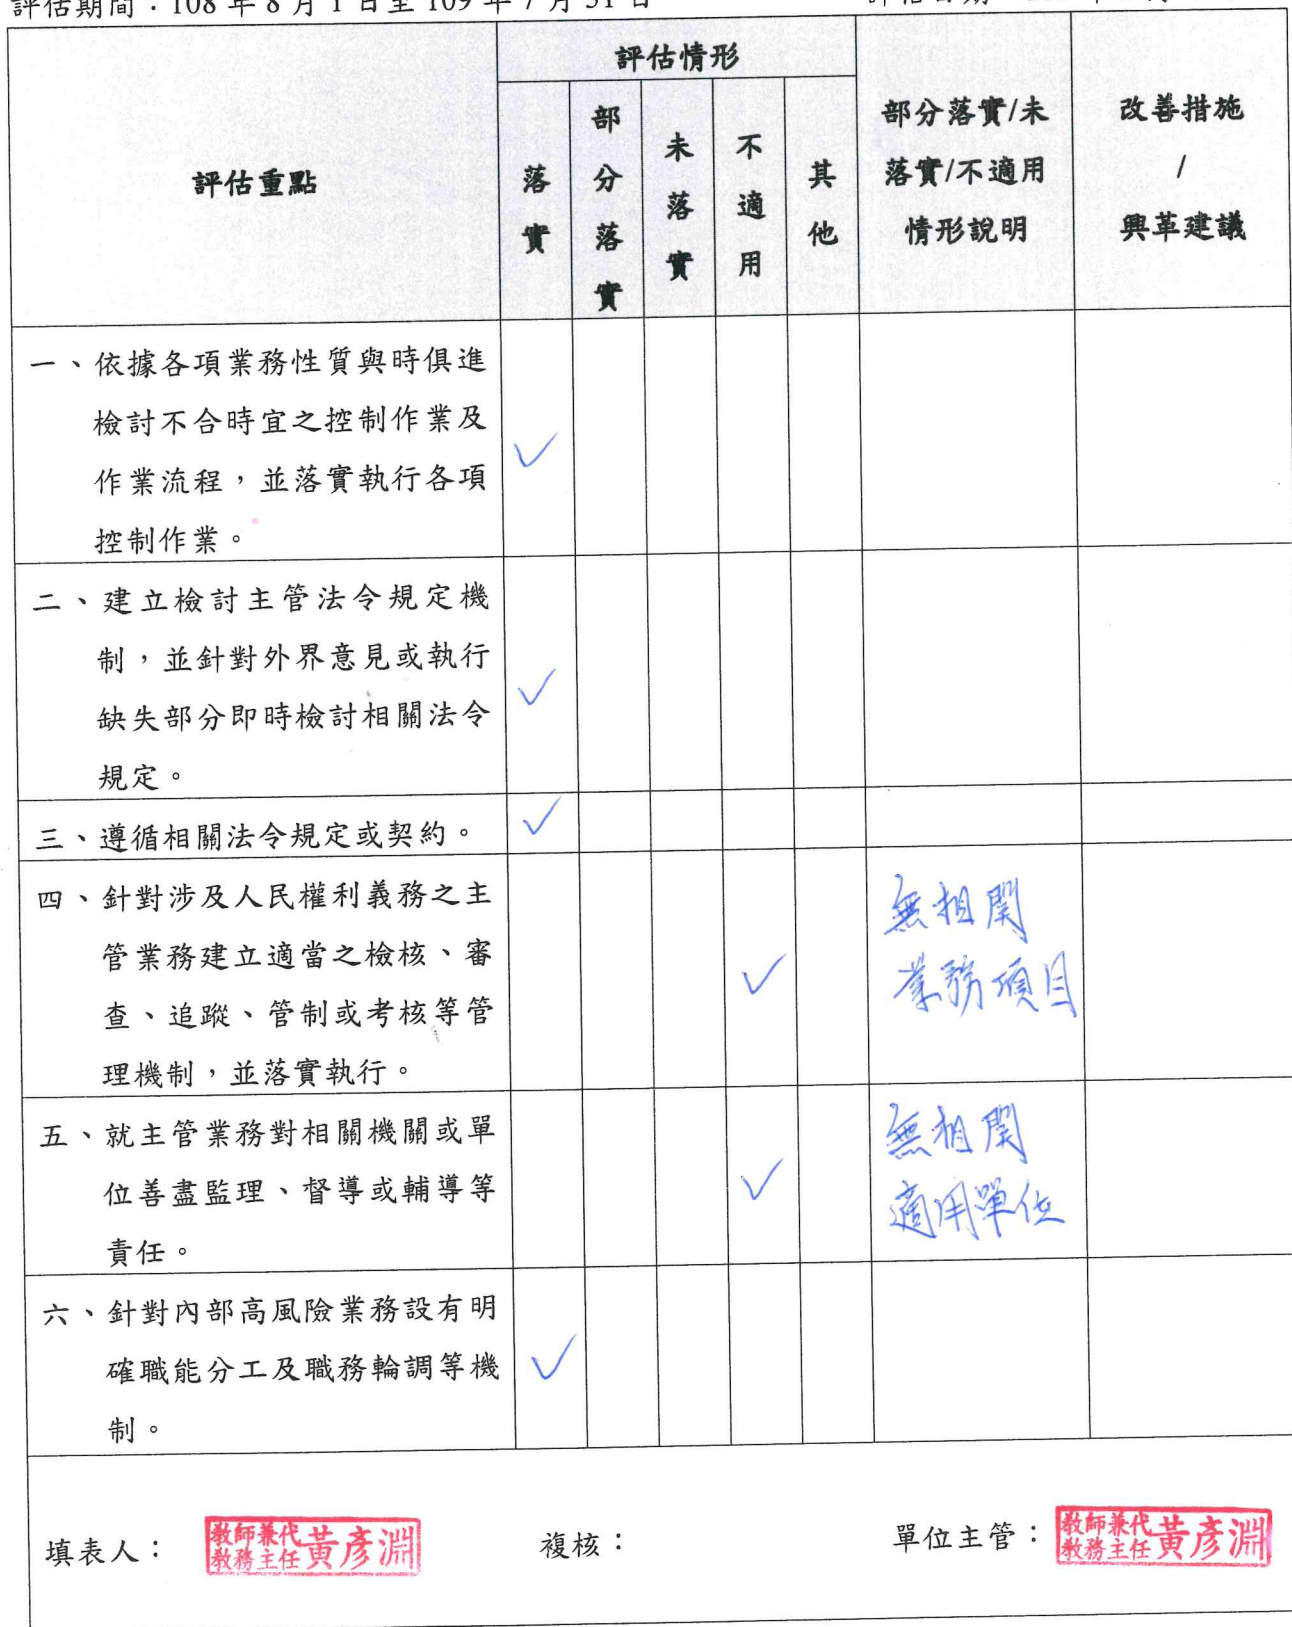 評估期間：108 年 8 月 1 日至 109 年 7 月 31 日
評估重點
評估情形
落實
部分落實
未落實
不適用
其他
部分落實/未
落實/不適用
情形說明
改善措施
/
興革建議
一、依據各項業務性質與時俱進
檢討不合時宜之控制作業及
作業流程，並落實執行各項
控制作業。
✓
二、建立檢討主管法令規定機
制，並針對外界意見或執行
缺失部分即時檢討相關法令
規定。
✓
三、遵循相關法令規定或契約。
✓
四、針對涉及人民權利義務之主
管業務建立適當之檢核、審
查、追蹤、管制或考核等管
理機制，並落實執行。
✓
無相関
業務項目
五、就主管業務對相關機關或單
位善盡監理、督導或輔導等
責任。
✓
無相関
適用單位
六、針對內部高風險業務設有明
確職能分工及職務輪調等機
制。
✓
填表人：
教師兼代
教務主任 黃彥淵
複核：
單位主管：
教師兼代
教務主任 黃彥淵